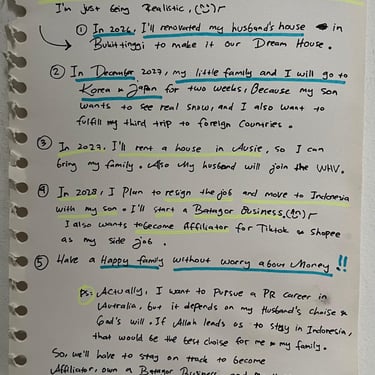 I'm just being Realistic, (
① In 2026, I'll renovated my husband's house in
Bukittinggi to make it our Dream House.
② In December 2027, my little family and I will go to
Korea & Japan for two weeks, Because my son
wants to see real snow, and I also want to
fulfill my third trip to foreign countries.
③ In 2027, I'll rent a house in Aussie, so I can
bring my family. Also my husband will join the WHV.
④ In 2028, I plan to resign the job and move to Indonesia
with my son. I'll start a Batagor Business.
I also wants to become Affiliator for Tiktok & Shopee
as my side job.
⑤ Have a Happy family without worry about Money!!
Ps: Actually, I want to pursue a PR career in
Australia, but it depends on my Husband's choise &
God's will. If Allah leads us to stay in Indonesia,
that would be the best choise for me & my family.
So, we'll have to stay on track to become
Affiliator, own a Batagor Business, and